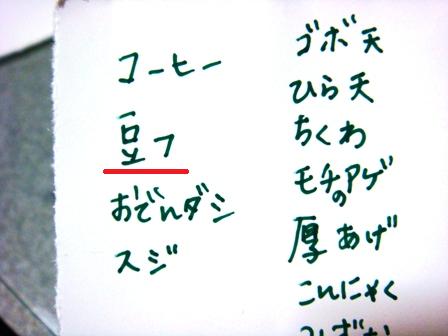 コーヒー
豆フ
おでんダシ
スジ
ゴボ天
ひら天
ちくわ
モチのアゲ
厚あげ
こんにゃく